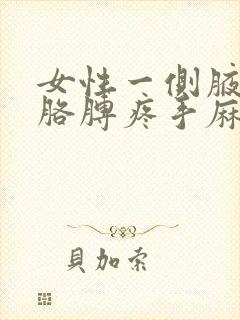 女性一側腋
胳膊疼手麻
貝加索